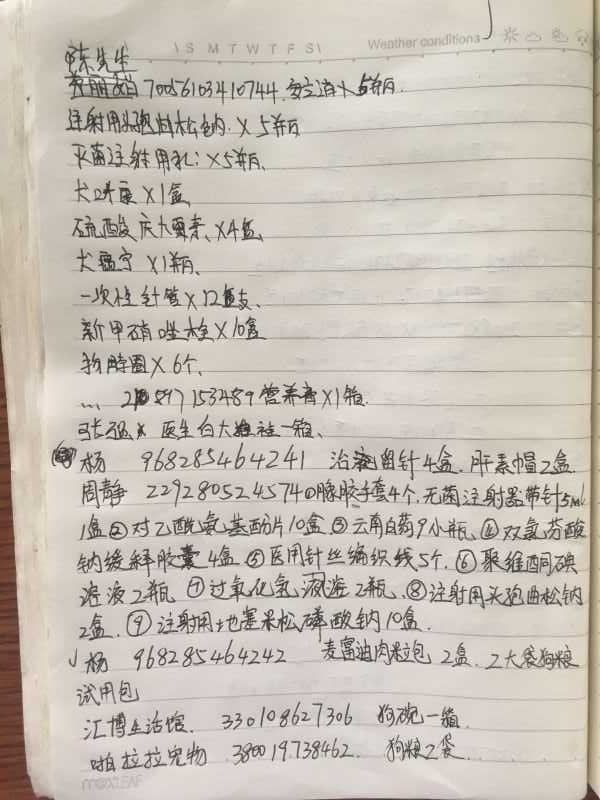 S M T W T F S Weather conditions
陈先生
70056103410744. 安立消×5瓶.
注射用头孢曲松钠. ×5瓶
灭菌注射用水: ×5瓶.
犬咳康×1盒
硫酸庆大霉素、×4盒
犬瘟宁×1瓶、
一次性针管×12支、
新甲硝唑栓×10盒
狗脖圈×6个、
... 597153489营养膏×1箱.
张强× 医生白大褂一箱、
杨 968285464241 治疗留针4盒. 肝素帽2盒.
周静 2292805245740橡胶手套4个. 无菌注射器带针5ml
1盒②对乙酰氨基酚片10盒③云南白药9小瓶、④双氯芬酸
钠缓释胶囊4盒⑤医用针丝编织线5个. ⑥聚维酮碘
溶液2瓶 ⑦过氧化氢液 2瓶、⑧注射用头孢曲松钠
2盒. ⑨注射用地塞米松磷酸钠10盒.
√杨 968285464242 麦富迪肉粒包2盒. 2大袋狗粮
试用包
汇博生活馆. 330108627306 狗碗一箱.
啪拉拉宠物 380019738462. 狗粮2袋.
LEAF